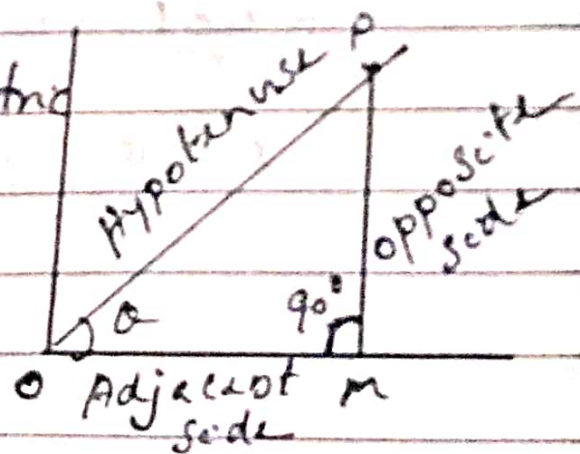 P
tric
Hypotenuse
opposite
side
90°
θ
O Adjacent M
side